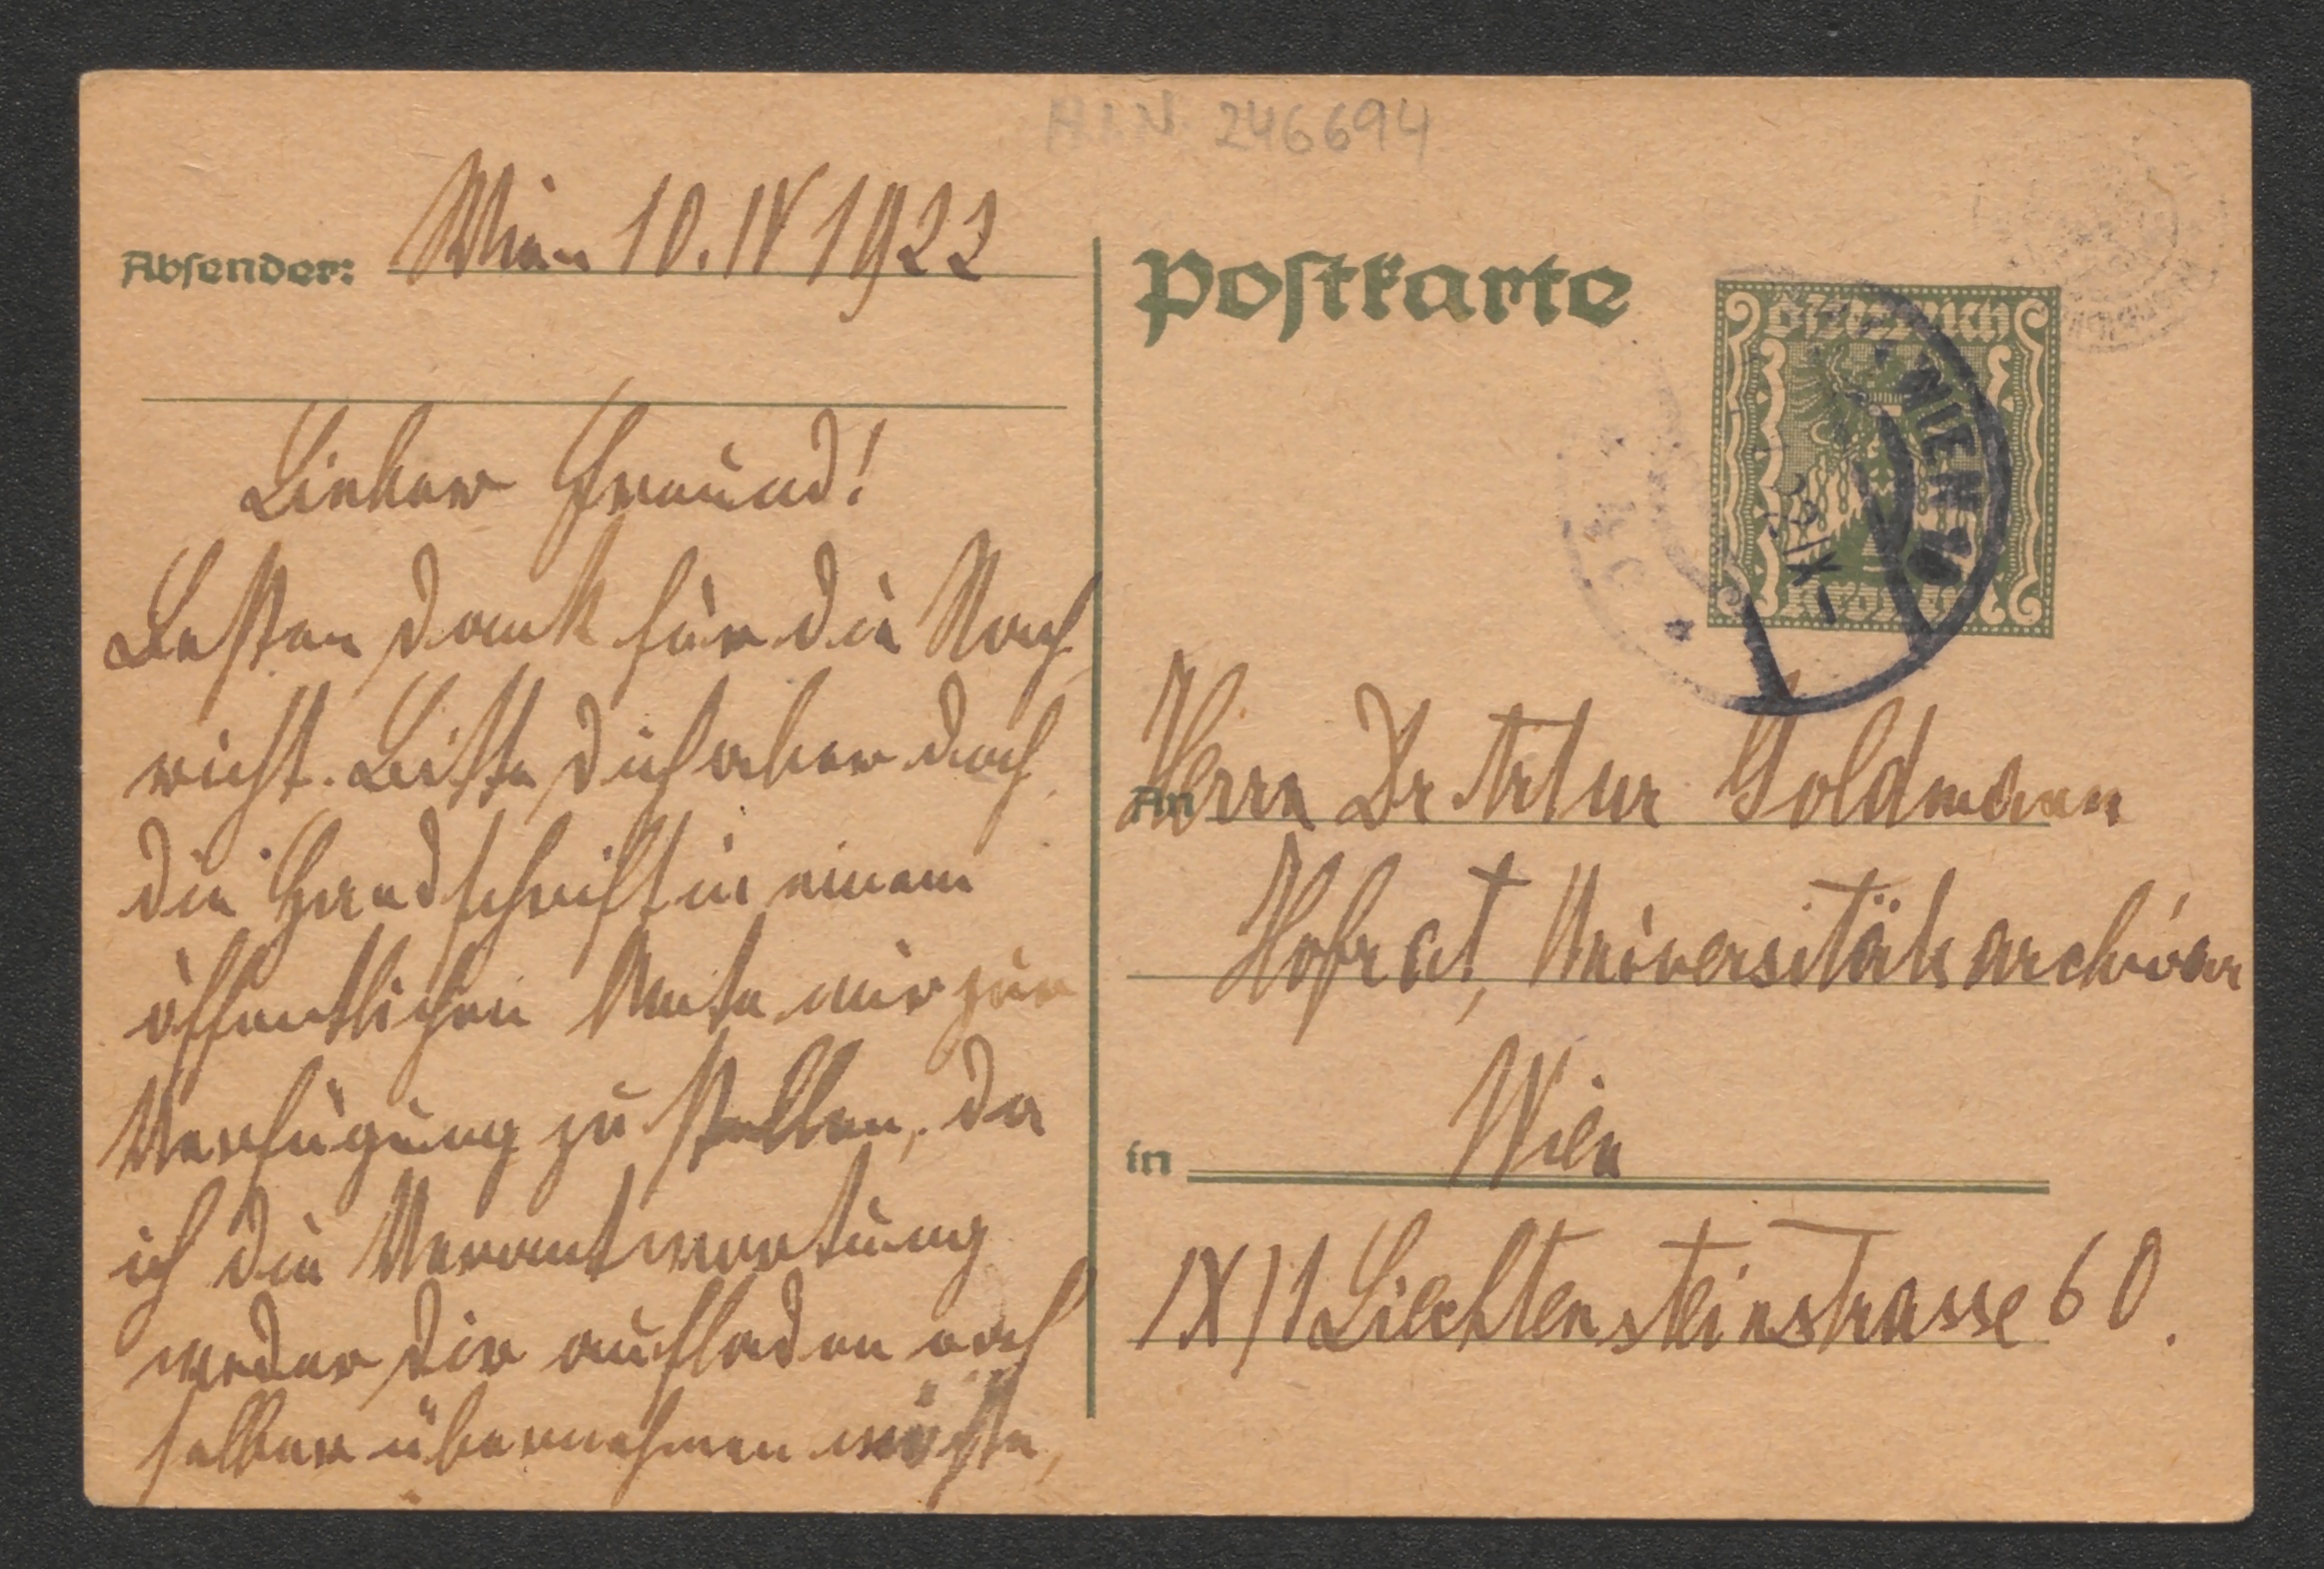 H.I.N. 246694
Absender: Wien 10. IV 1922
Lieber Freund!
Besten Dank für die Nach-
richt. Bitte Dich aber doch
die Handschrift in einem
öffentlichen Amte mir zur
Verfügung zu stellen, da
ich die Verantwortung
weder Dir aufladen noch
selber übernehmen möchte,
Postkarte
Österreich
Kronen
WIEN
An Herrn Dr Artur Goldmann
Hofrat, Universitätsarchivar
in Wien
IX/1 Liechtensteinstrasse 60.